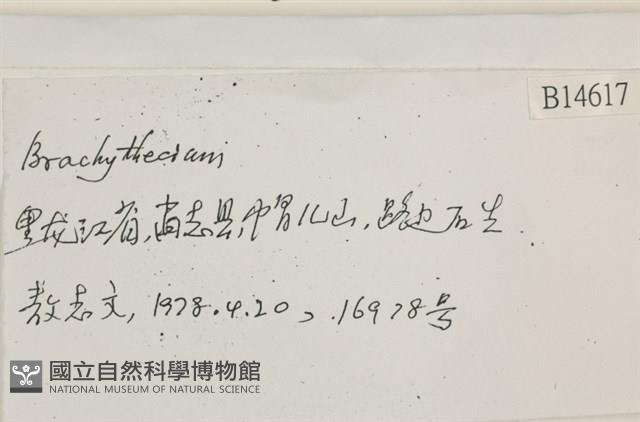 B14617
Brachythecium
黑龙江省,尚志县,帽儿山,路边石生.
敖志文, 1978.4.20, .16978号
國立自然科學博物館
NATIONAL MUSEUM OF NATURAL SCIENCE